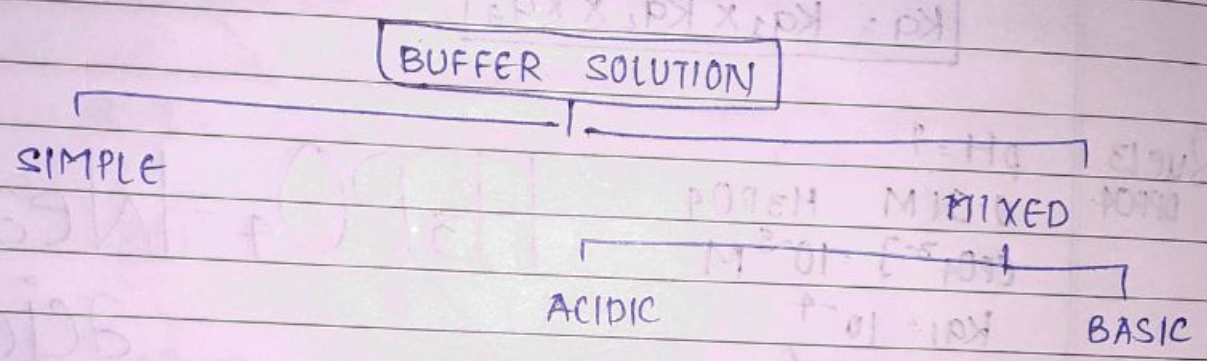 BUFFER SOLUTION
SIMPLE
MIXED
ACIDIC
BASIC